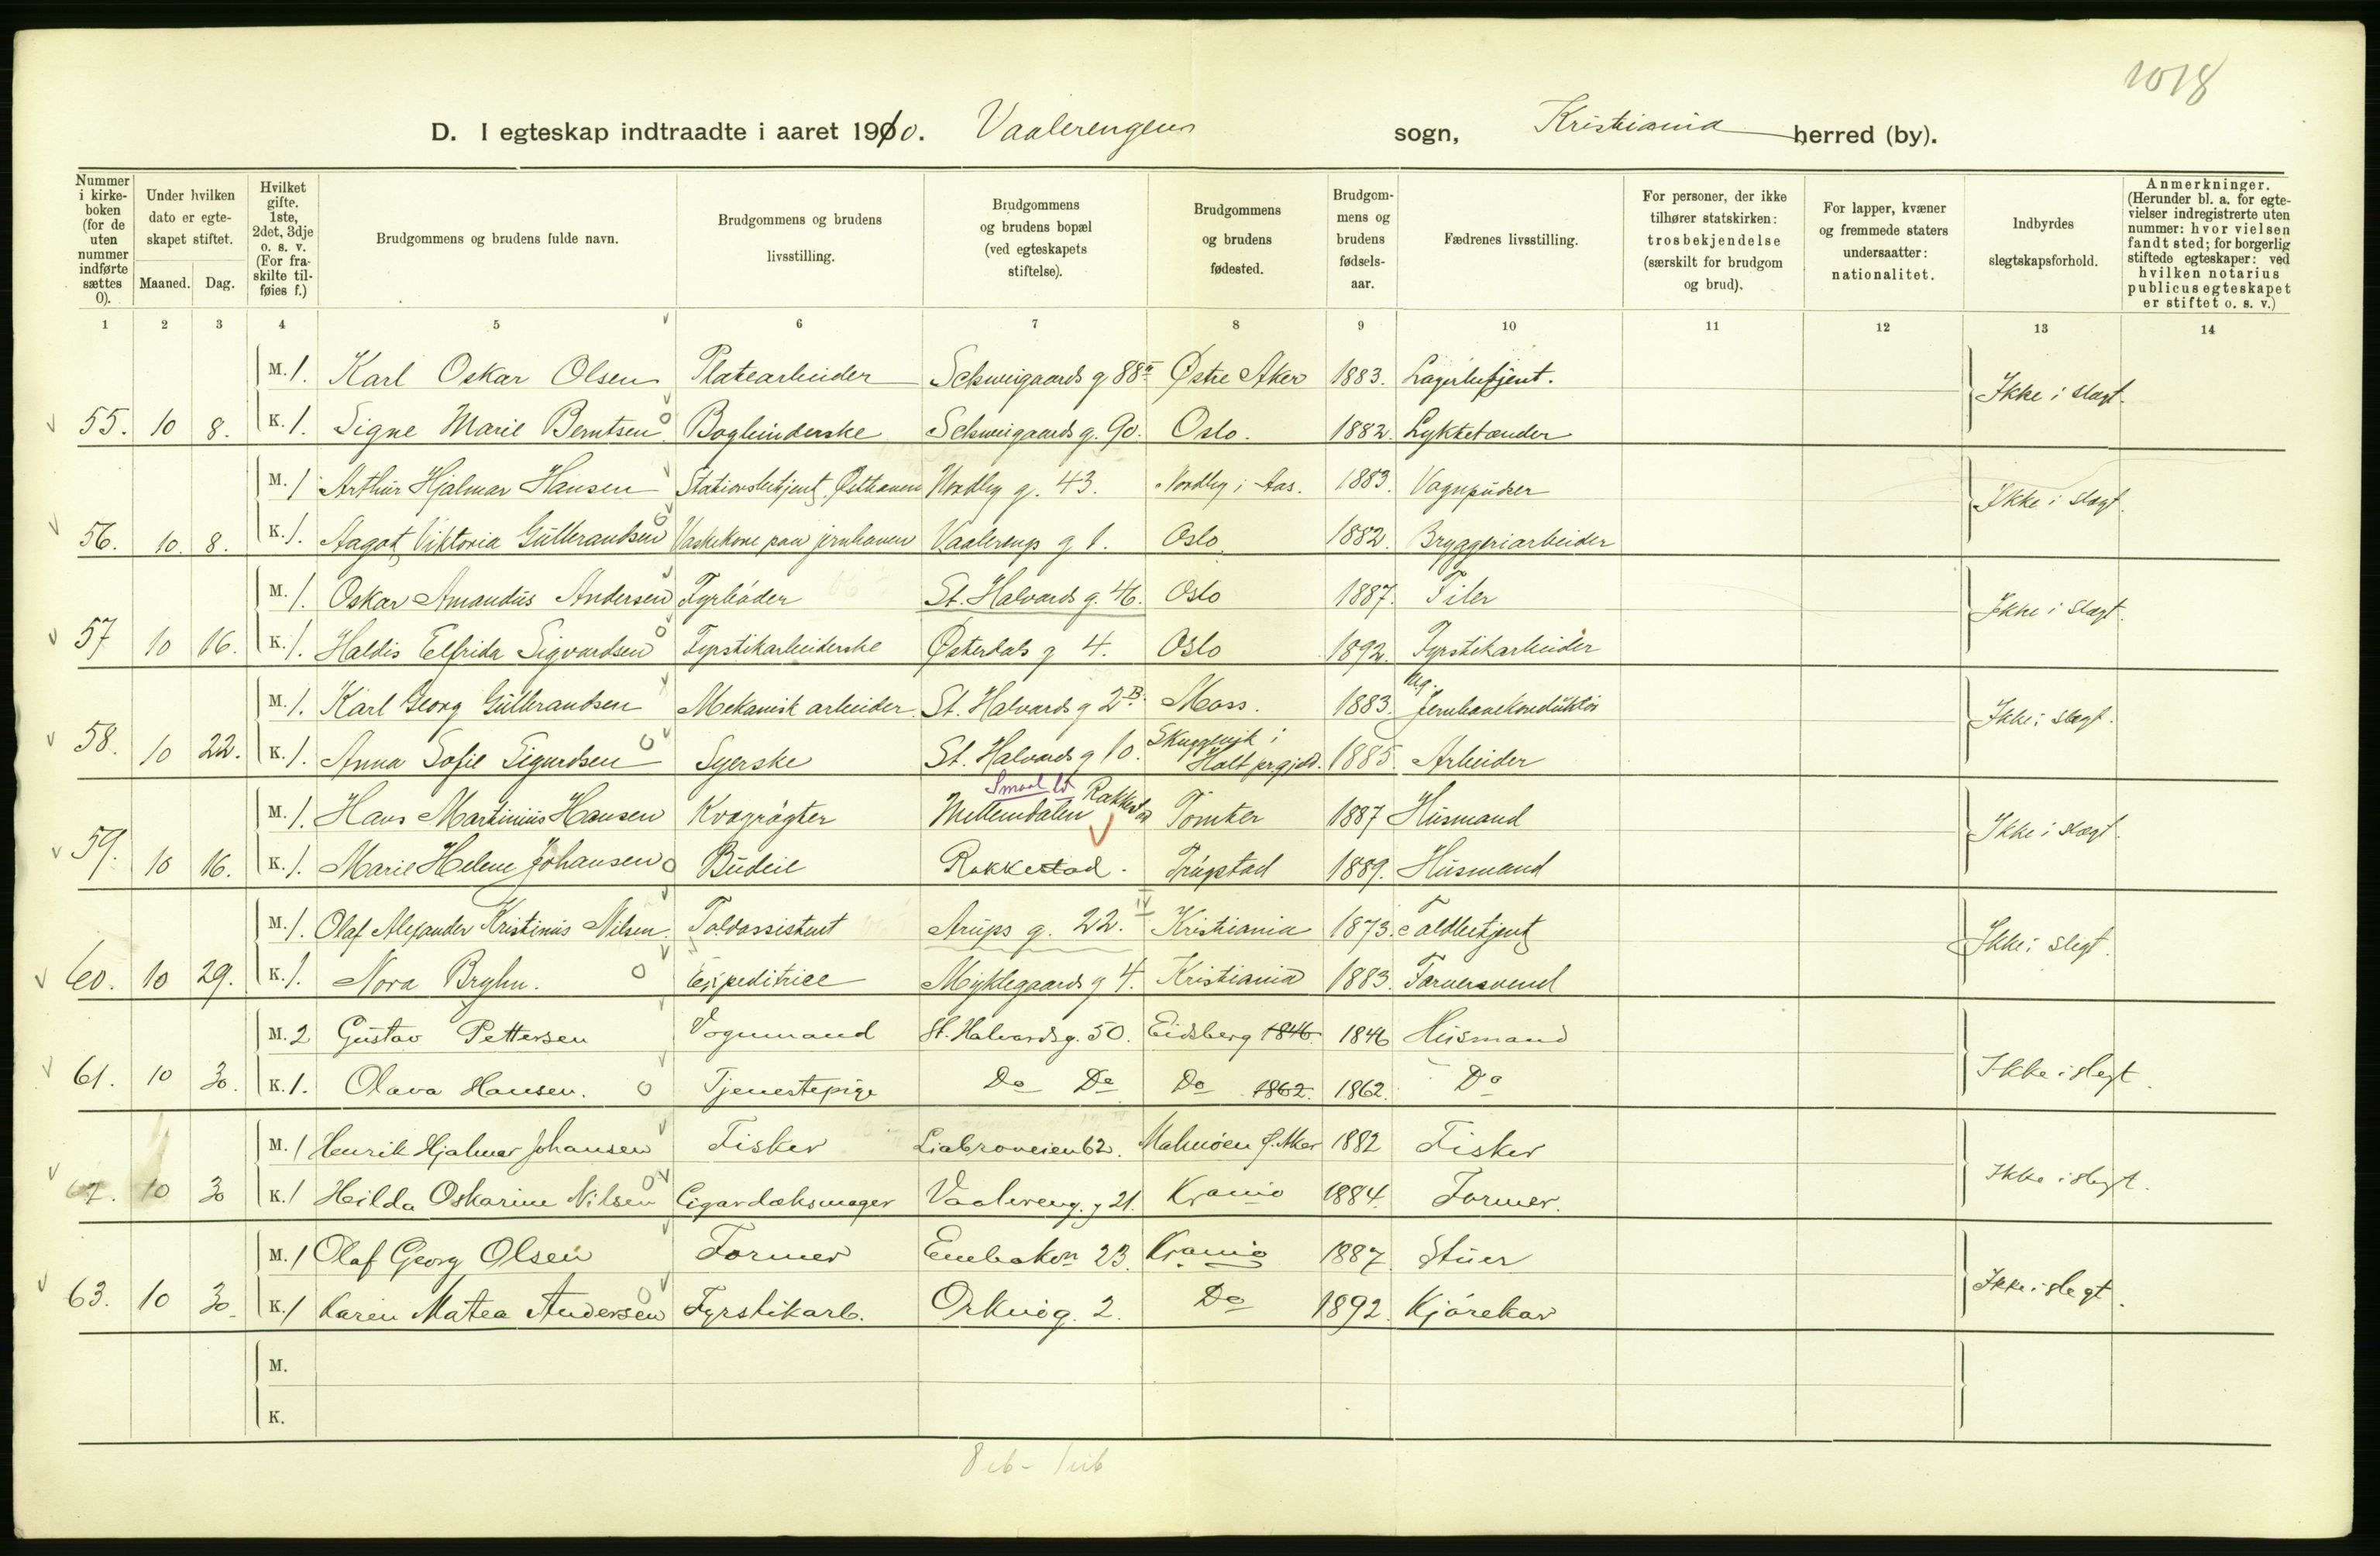 1018
D. I egteskap indtraadte i aaret 1910. Vaalerengens sogn, Kristiania herred (by).
Nummer i kirkeboken (for de uten nummer indførte sættes 0).
Under hvilken dato er egteskapet stiftet.
Maaned. Dag.
Hvilket gifte. 1ste, 2det, 3dje o. s. v. (For fraskilte tilføies f.)
Brudgommens og brudens fulde navn.
Brudgommens og brudens livsstilling.
Brudgommens og brudens bopæl (ved egteskapets stiftelse).
Brudgommens og brudens fødested.
Brudgommens og brudens fødselsaar.
Fædrenes livsstilling.
For personer, der ikke tilhører statskirken: trosbekjendelse (særskilt for brudgom og brud).
For lapper, kvæner og fremmede staters undersaatter: nationalitet.
Indbyrdes slegtskapsforhold.
Anmerkninger. (Herunder bl. a. for egtevielser indregistrerte uten nummer: hvor vielsen fandt sted; for borgerlig stiftede egteskaper: ved hvilken notarius publicus egteskapet er stiftet o. s. v.)
1 2 3 4 5 6 7 8 9 10 11 12 13 14
M. 1. Karl Oskar Olsen Platearbeider Schweigaards g 88a Østre Aker 1883. Lagerbetjent. Ikke i slægt.
55. 10 8. K. 1. Signe Marie Berntsen Bogbinderske Schweigaards g. 90. Oslo. 1882. Lyktetænder
M. 1 Arthur Hjalmar Hansen Stationsbetjent, Østbanen Nordby g. 43. Nordby i Aas. 1883. Vognpudser Ikke i slægt.
56. 10. 8. K. 1. Aagot Viktoria Gulbrandsen Vaskekone paa jernbanen Vaalereng g 1. Oslo. 1882. Bryggeriarbeider
M. 1. Oskar Amandus Andersen Fyrbøder St. Halvards g. 46. Oslo 1887. Filer Ikke i slægt.
57 10 16. K. 1. Haldis Elfrida Sigvardsen Fyrstikarbeiderske Østerdals g 4. Oslo 1892. Fyrstikarbeider
M. 1. Karl Georg Gulbrandsen Mekanisk arbeider. St. Halvards g 2B. Moss. 1883. Ug. Jernbanekonduktør Ikke i slægt.
58. 10 22. K. 1. Anna Sofie Sigurdsen Syerske St. Halvards g 10. Skuggevik i Holt prgjeld. 1885. Arbeider
Smaal
M. 1. Hans Martinius Hansen Kvægrøgter Mellemdalen Rakkestad Tomter 1887 Husmand Ikke i slægt.
59. 10 16. K. 1. Marie Helene Johansen Budeie Rakkestad. Trøgstad 1889. Husmand
M. 1. Olaf Alexander Kristinius Nilsen. Toldassistent Arups g. 22. IV Kristiania 1873. Toldbetjent Ikke i slegt.
60. 10 29. K. 1. Nora Bryhn. Expeditrice Myklegaards g 4. Kristiania 1883. Farversvend
M. 2 Gustav Pettersen Vognmand St. Halvards g. 50. Eidsberg 1846 1846 Husmand Ikke i slegt.
61. 10 30. K. 1. Olava Hansen. Tjenestepige Do Do Do 1862. 1862. Do
M. 1 Henrik Hjalmar Johansen Fisker Liabroveien 62. Malmøen Ø. Aker 1882 Fisker Ikke i slegt.
62. 10 30 K. 1 Hilda Oskarine Nilsen Cigardæksmager Vaalereng. g 21. Krania 1884. Former.
M. 1 Olaf Georg Olsen Former Enebakvn 23. Krania 1887 Stuer Ikke i slegt.
63. 10 30. K. 1 Karen Matea Andersen Fyrstikarb. Orknøg. 2. Do 1892. Kjørekar
M.
K.